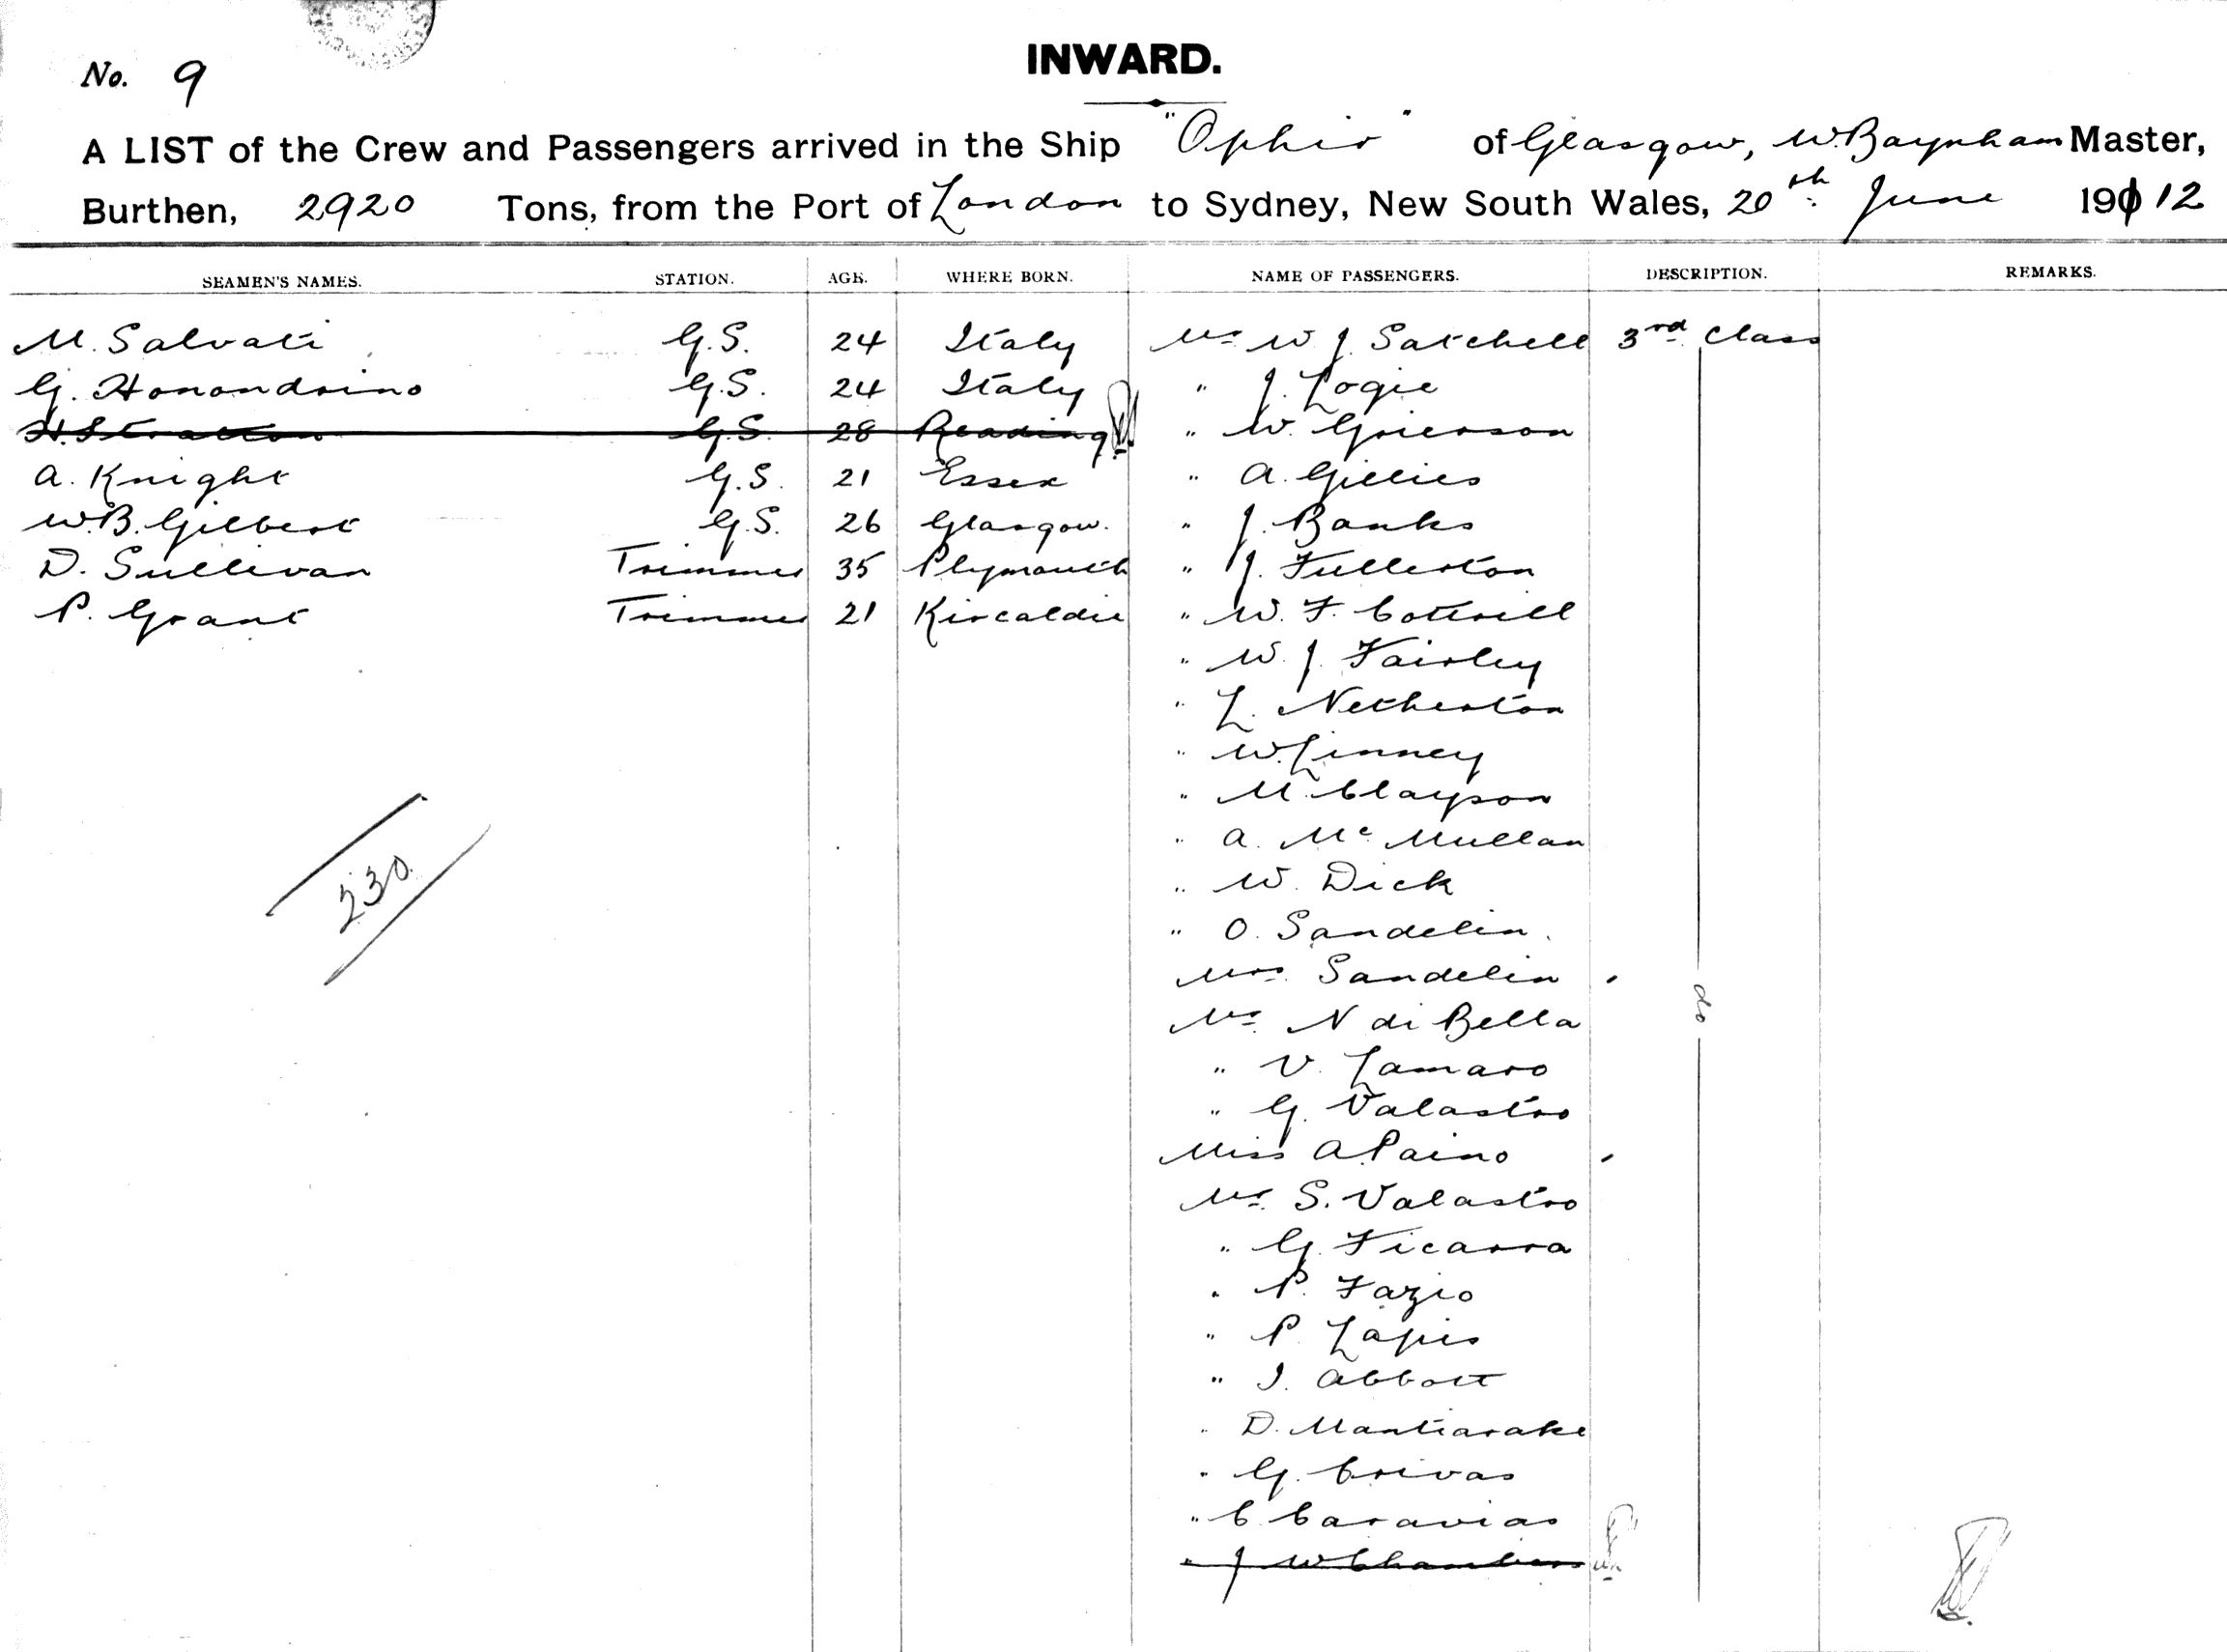 No. 9
INWARD.
A LIST of the Crew and Passengers arrived in the Ship "Ophir" of Glasgow, W. Baynham Master,
Burthen, 2920 Tons, from the Port of London to Sydney, New South Wales, 20th June 19012
SEAMEN'S NAMES. STATION. AGE. WHERE BORN. NAME OF PASSENGERS. DESCRIPTION. REMARKS.
M. Salvati G.S. 24 Italy Mr W J. Satchell 3rd Class
G. Honondrino G.S. 24 Italy " J. Logie
H. Stratton G.S. 28 Reading " W. Grierson
A. Knight G.S. 21 Essex " A. Gillies
W.B. Gilbert G.S. 26 Glasgow. " J. Banks
D. Sullivan Trimmer 35 Plymouth " J. Fullerton
P. Grant Trimmer 21 Kircaldie " W. F. Cottrill
" W. J. Fairley
" L. Netherton
" W. Linney
" M. Clayson
" A. Mc Mullan
" W. Dick
" O. Sandelin.
Mrs. Sandelin
do
Mr. N di Bella
" V. Lamaro
" G. Valastro
Miss A Paino
Mr. S. Valastro
" G. Ficarra
" P. Fazio
" P. Lapis
" J. Abbott
" D. Mantiarake
" G. Crivas
" C Caravias
" J W Chambers
230